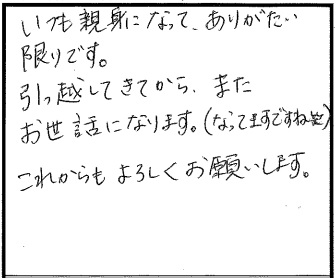 いつも親身になって、ありがたい
限りです。
引っ越してきてから、また
お世話になります。(なってますですね笑)
これからもよろしくお願いします。